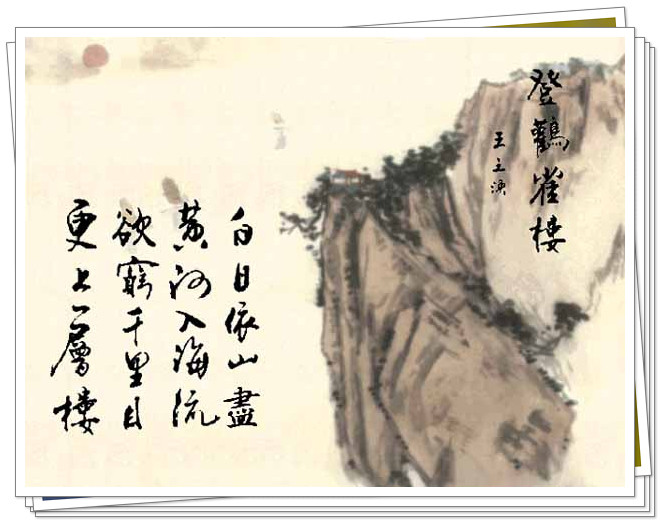 登鸛雀樓
王之渙
白日依山盡
黃河入海流
欲窮千里目
更上一層樓